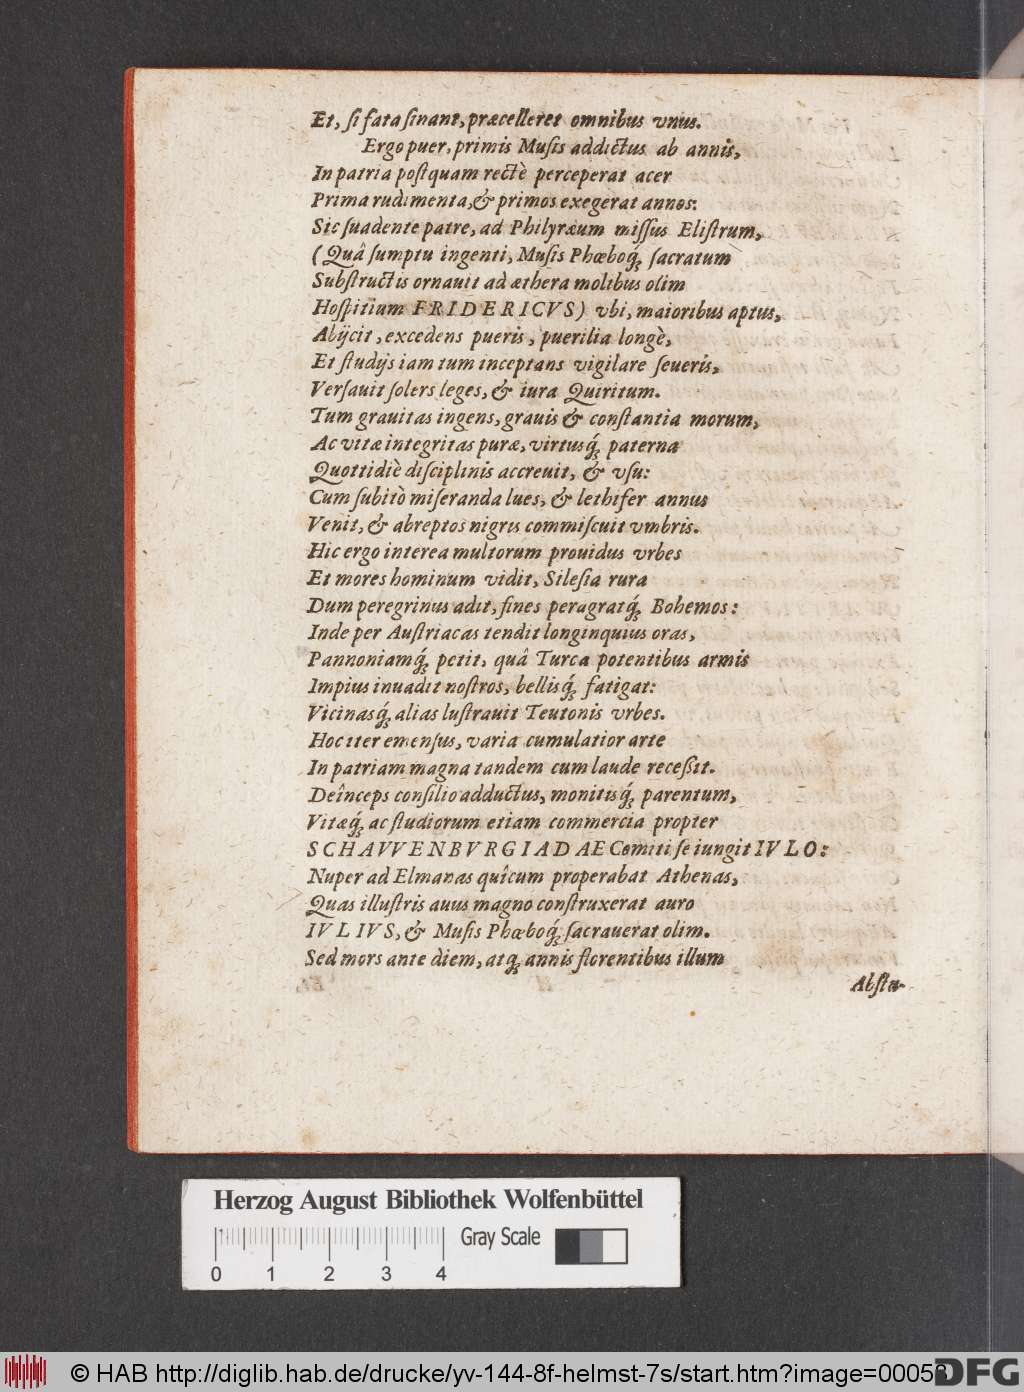 Et, ſi fata ſinant, præcelleret omnibus vnus.
Ergo puer, primis Muſis addictus ab annis,
In patria poſtquam rectè perceperat acer
Prima rudimenta, & primos exegerat annos:
Sic ſuadente patre, ad Philyræum miſſus Eliſtrum,
(Quâ ſumptu ingenti, Muſis Phœboq́; ſacratum
Subſtructis ornauit ad æthera molibus olim
Hoſpitium FRIDERICVS) vbi, maioribus aptus,
Abijcit, excedens pueris, puerilia longè,
Et ſtudijs iam tum inceptans vigilare ſeueris,
Verſauit ſolers leges, & iura Quiritum.
Tum grauitas ingens, grauis & conſtantia morum,
Ac vitæ integritas puræ, virtusq́; paterna
Quottidiè diſciplinis accreuit, & vſu:
Cum ſubitò miſeranda lues, & lethifer annus
Venit, & abreptos nigris commiſcuit vmbris.
Hic ergo interea multorum prouidus vrbes
Et mores hominum vidit, Sileſia rura
Dum peregrinus adit, fines peragratq́; Bohemos:
Inde per Auſtriacas tendit longinquius oras,
Pannoniamq́; petit, quâ Turca potentibus armis
Impius inuadit noſtros, bellisq́; fatigat:
Vicinasq́; alias luſtrauit Teutonis vrbes.
Hoc iter emenſus, varia cumulatior arte
In patriam magna tandem cum laude receßit.
Deînceps conſilio adductus, monitisq́; parentum,
Vitæq́; ac ſtudiorum etiam commercia propter
SCHAVVENBVRGIADAE Comiti ſe iungit IVLO:
Nuper ad Elmanas quîcum properabat Athenas,
Quas illuſtris auus magno conſtruxerat auro
IVLIVS, & Muſis Phœboq́; ſacrauerat olim.
Sed mors ante diem, atq; annis florentibus illum
Abſtu-
Herzog August Bibliothek Wolfenbüttel
Gray Scale
0 1 2 3 4
© HAB http://diglib.hab.de/drucke/yv-144-8f-helmst-7s/start.htm?image=00058
DFG